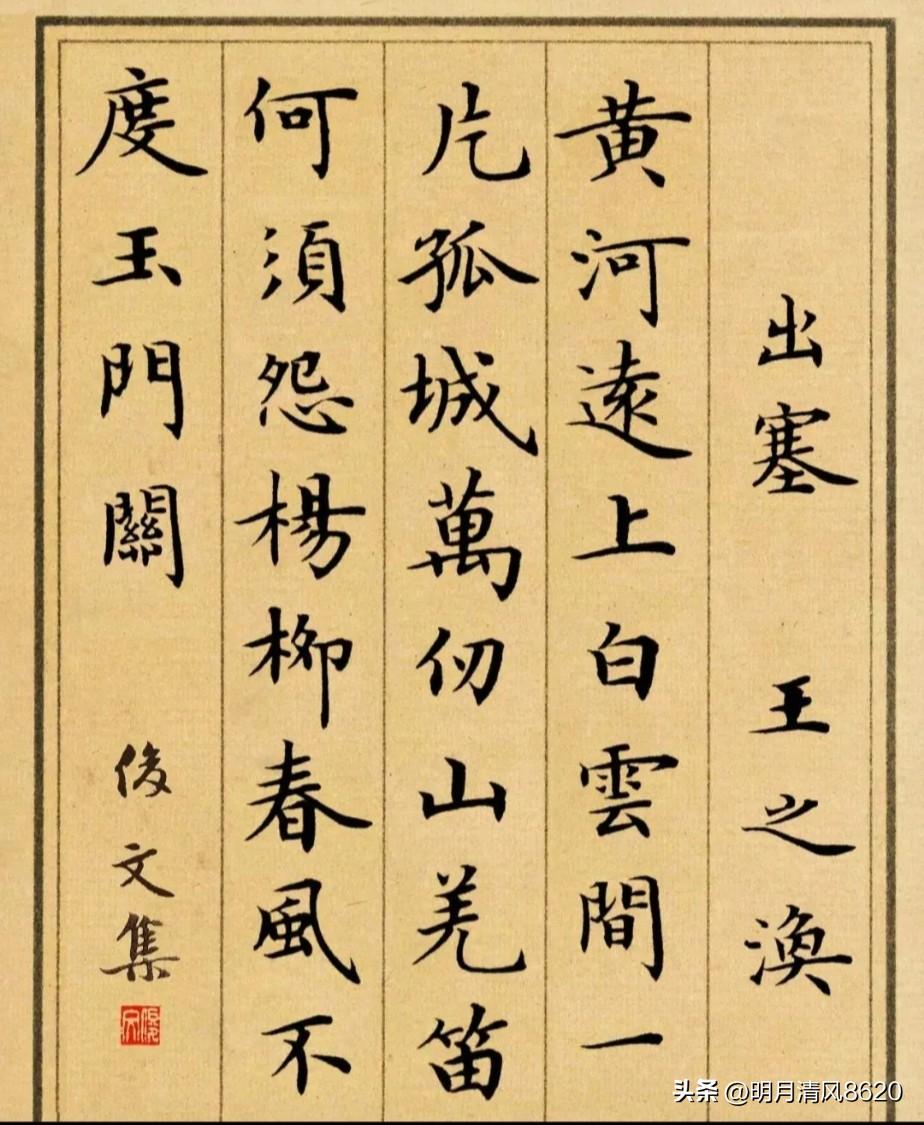 出塞 王之渙
黃河遠上白雲間一
片孤城萬仞山羌笛
何須怨楊柳春風不
度玉門關 俊文集
头条 @明月清风8620